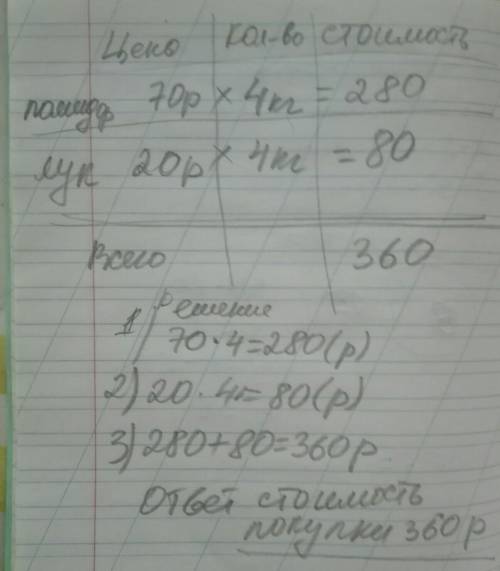 Цена кол-во стоимость
помидор 70р × 4кг = 280
лук 20р × 4кг = 80
Всего 360
Решение
1) 70·4=280(р)
2) 20·4=80(р)
3) 280+80=360р
Ответ стоимость
покупки 360р